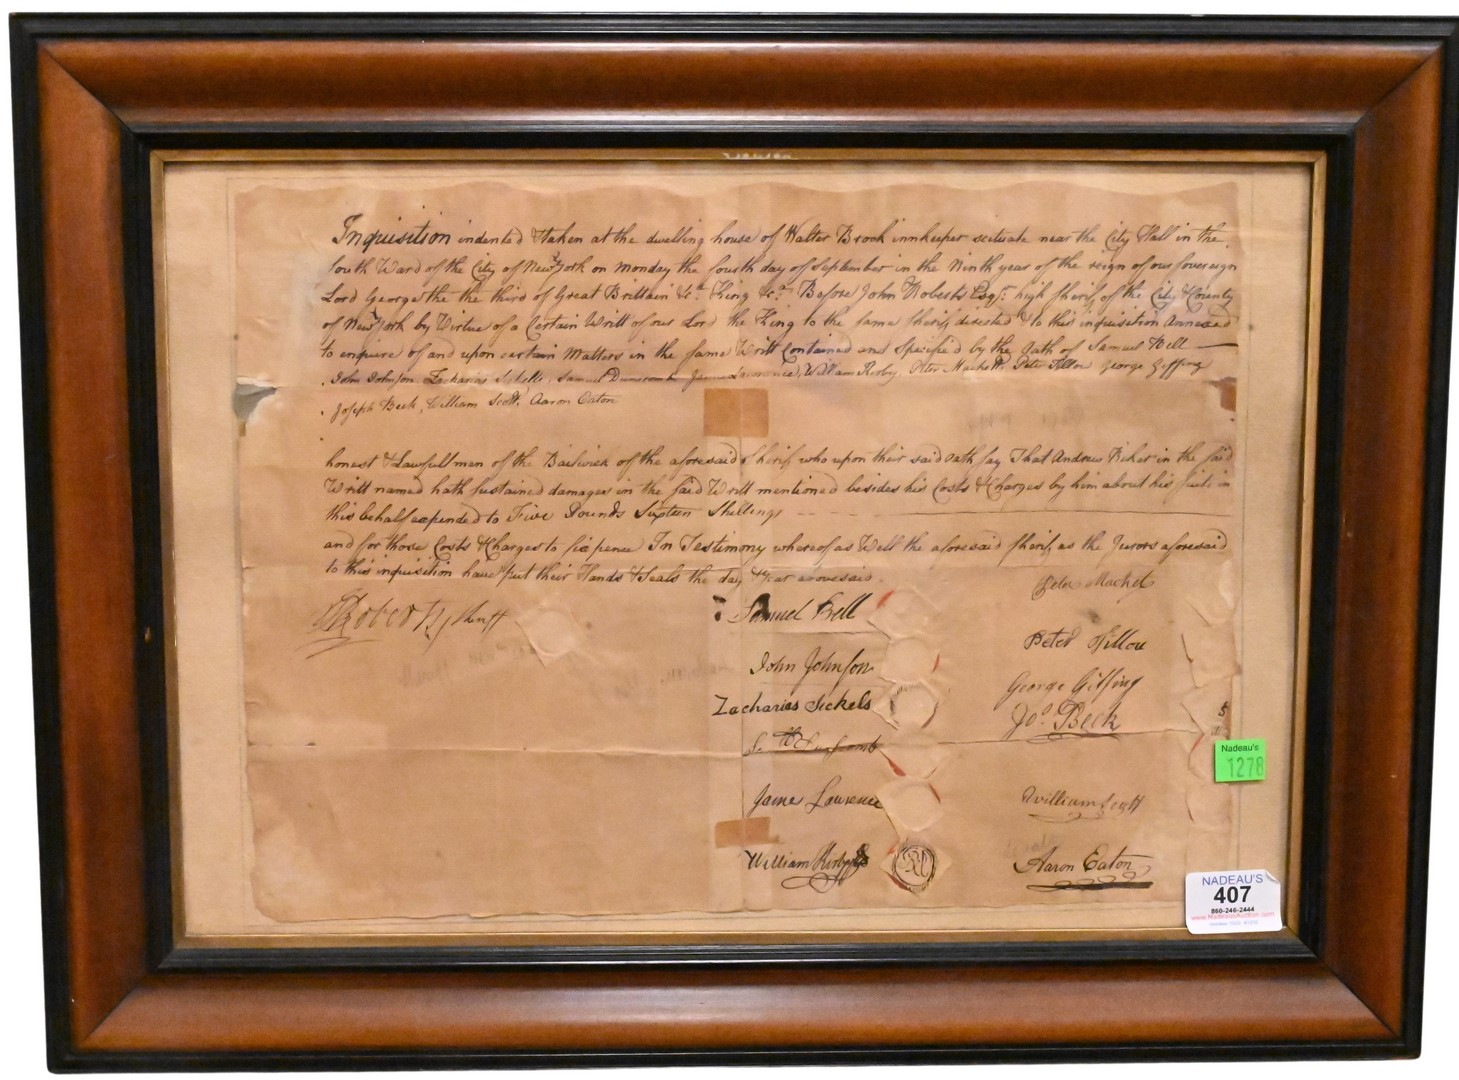 Inquisition indented & taken at the dwelling house of Walter Brock innkeeper scituate near the City Hall in the
South Ward of the City of New York on monday the fourth day of September in the Ninth year of the reign of our Sovereign
Lord George the the third of Great Brittain &c. King &c. Before John Roberts Esqr. high Sherif of the City & County
of New York by Virtue of a Certain Writt of our Lord the King to the same Sherif directed & to this inquisition Annexed
to enquire of and upon certain Matters in the same Writt Contained and Specified by the Oath of Samuel Bell
John Johnson Zacharias Sickells, Samuel Dunscomb James Lawrence, William Kirby, Peter Mackett Peter Fillon George Gilfing
Joseph Beck, William Scott, Aaron Eaton
honest & Lawfull men of the Bailwick of the aforesaid Sherif who upon their said oath say That Andrew Riker in the said
Writt named hath sustained damages in the said Writt mentioned besides his Costs & Charges by him about his suit in
this behalf expended to Five Pounds Sixteen Shillings
and for those Costs & Charges to six pence In Testimony whereof as Well the aforesaid Sherif as the Jurors aforesaid
to this inquisition have put their Hands & Seals the day & year abovesaid.
Peter Macket
Roberts Sheriff
Samuel Bell
Peter Fillou
John Johnson
George Gilfing
Zacharias Sickels
Jos. Beck
James Lawrence
William Scott
William Kirby
Aaron Eaton
Nadeau's
1278
NADEAU'S
407
860-246-2444
www.NadeausAuction.com